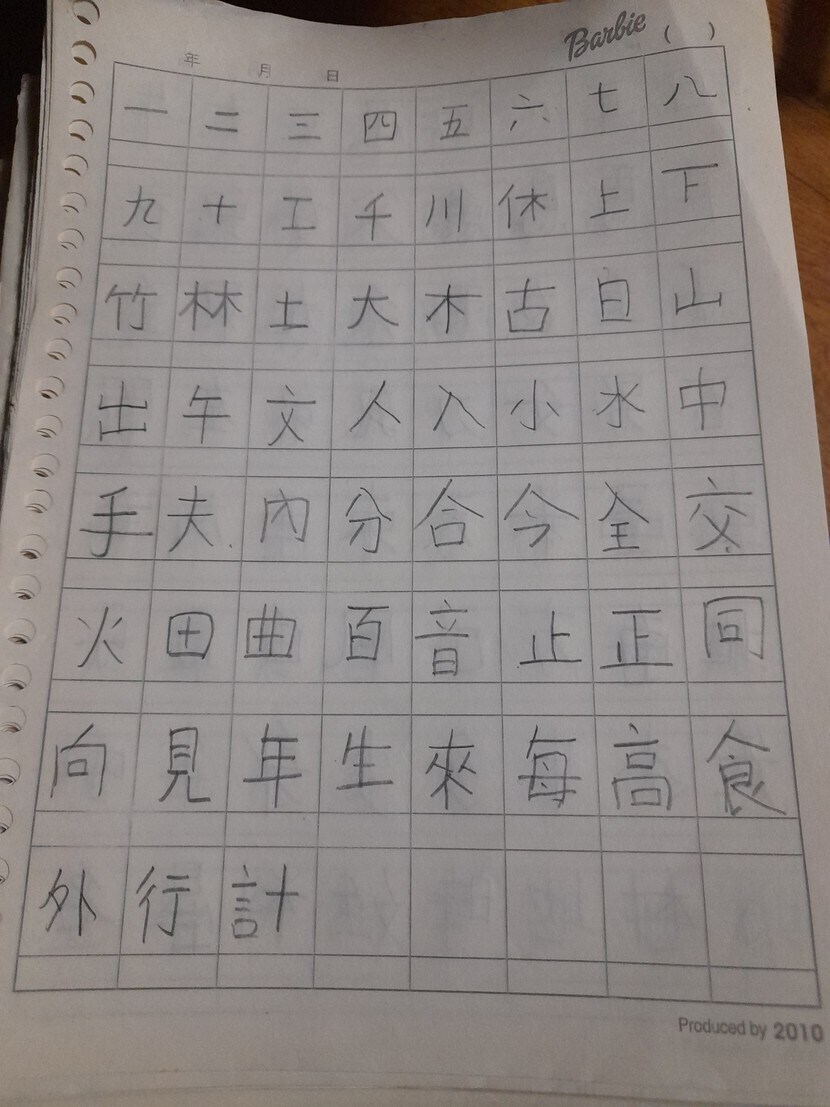 Barbie ( )
年 月 日
一 二 三 四 五 六 七 八
九 十 工 千 川 休 上 下
竹 林 土 大 木 古 白 山
出 午 文 人 入 小 水 中
手 夫 內 分 合 今 全 交
火 田 曲 百 音 止 正 同
向 見 年 生 來 每 高 食
外 行 計
Produced by 2010